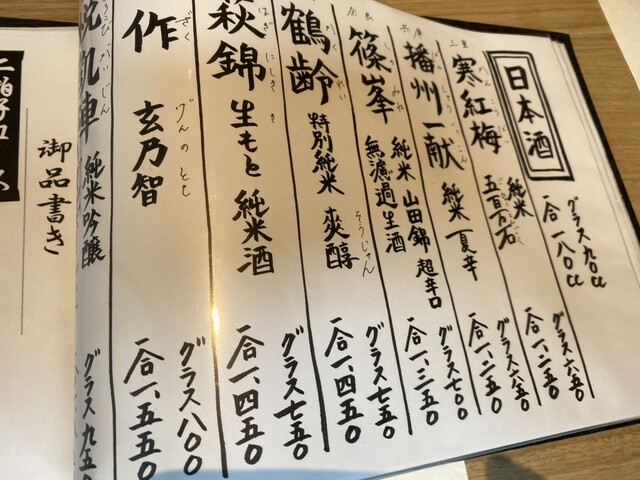 日本酒
グラス九〇cc
一合一八〇cc
三重
寒紅梅
純米
五百万石
グラス六五〇
一合一、二五〇
播州一献
純米 夏辛
グラス六五〇
一合一、二五〇
奈良
篠峯
純米 山田錦 超辛口
無濾過生酒
グラス七〇〇
一合一、三五〇
鶴齢
かくれい
特別純米 爽醇
そうじゅん
グラス七五〇
一合一、四五〇
萩錦
はぎにしき
生もと 純米酒
グラス七五〇
一合一、四五〇
作
ざく
玄乃智
げんのとも
グラス八〇〇
一合一、五五〇
凱陣 純米吟醸
グラス九五〇
御品書き